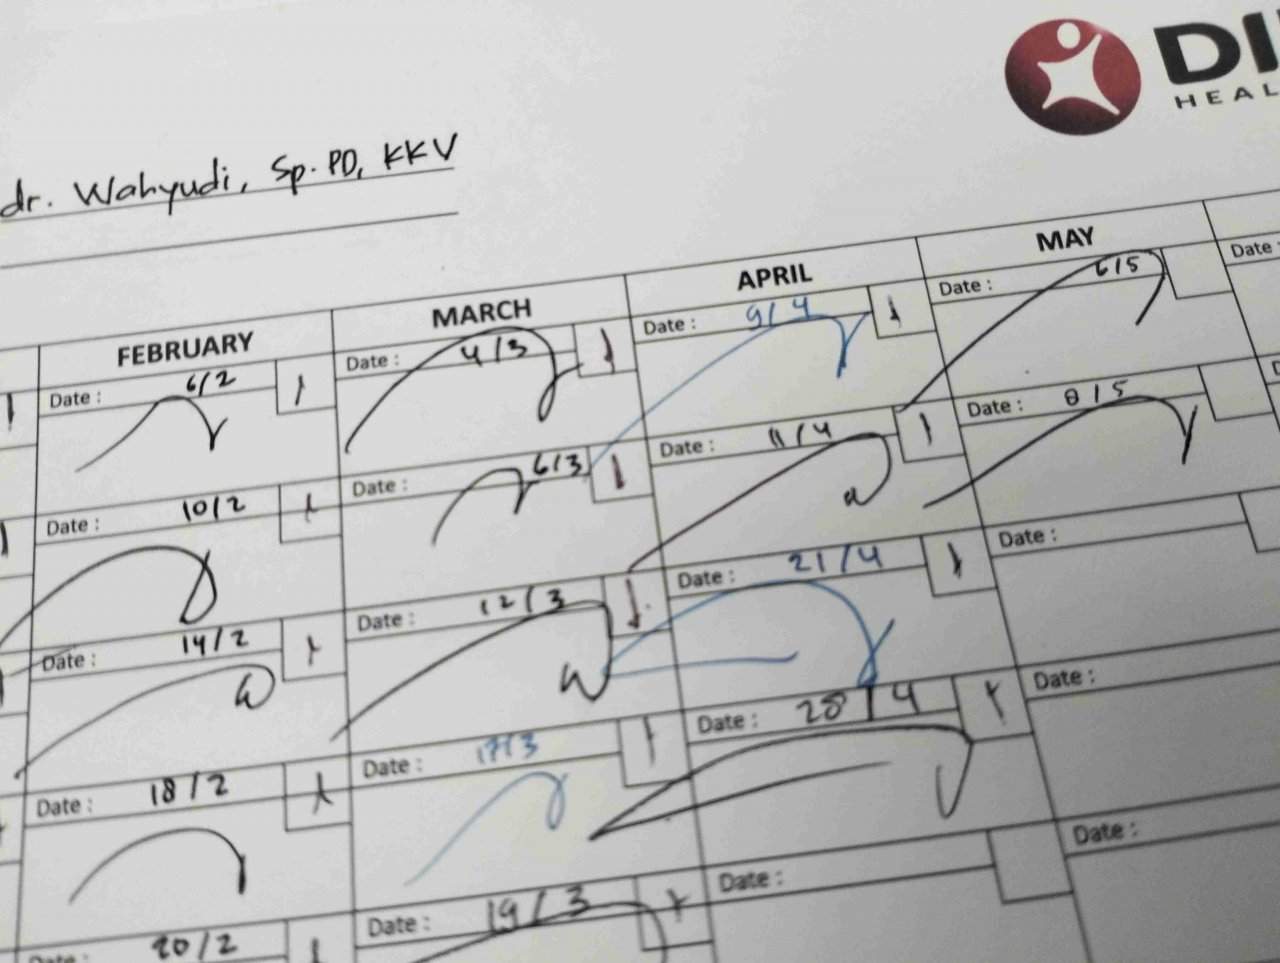 DI
HEAL
dr. Wahyudi, Sp.PD, KKV
FEBRUARY MARCH APRIL MAY
Date : 6/2 Date : 4/3 Date : 9/4 Date : 6/5 Date :
Date : 10/2 Date : 6/3 Date : 11/4 Date : 8/5
Date : 14/2 Date : 12/3 Date : 21/4 Date :
Date : 18/2 Date : 17/3 Date : 28/4 Date :
Date : 20/2 Date : 19/3 Date : Date :